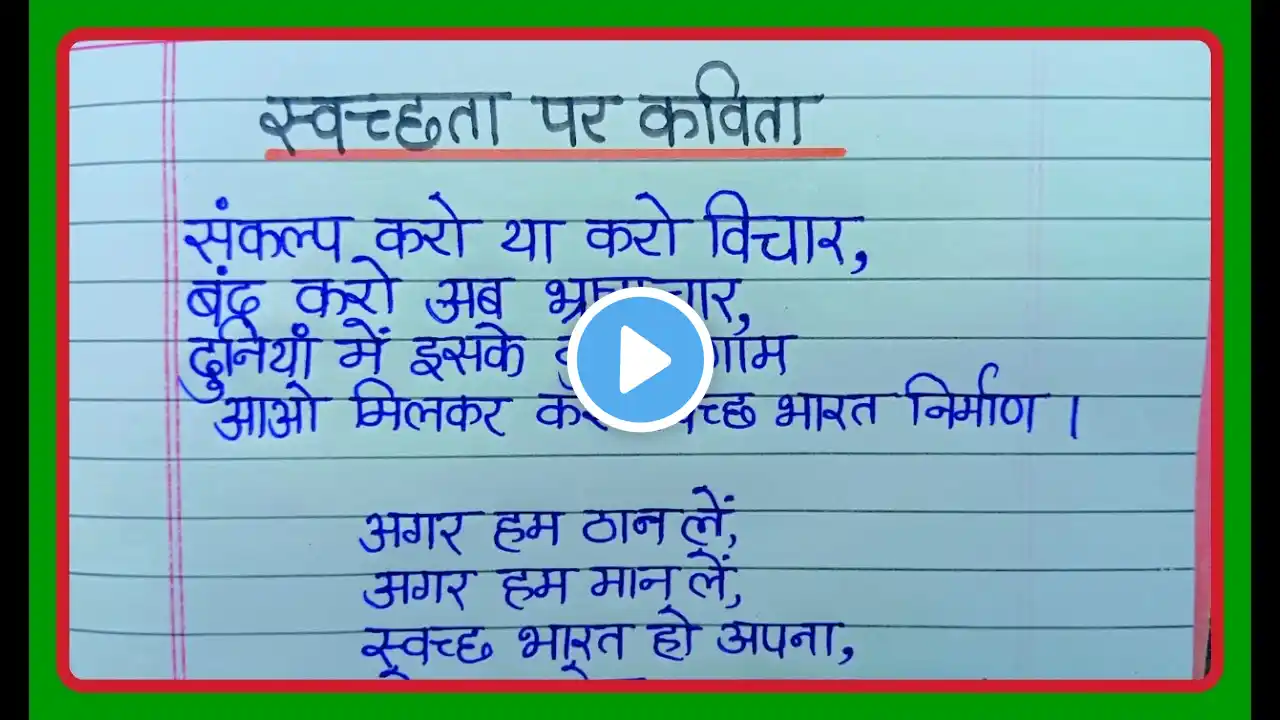 स्वच्छता पर कविता
संकल्प करो या करो विचार,
बंद करो अब
दुनियां में इसके
आओ मिलकर भारत निर्माण ।
अगर हम ठान लें,
अगर हम मान लें,
स्वच्छ भारत हो अपना,